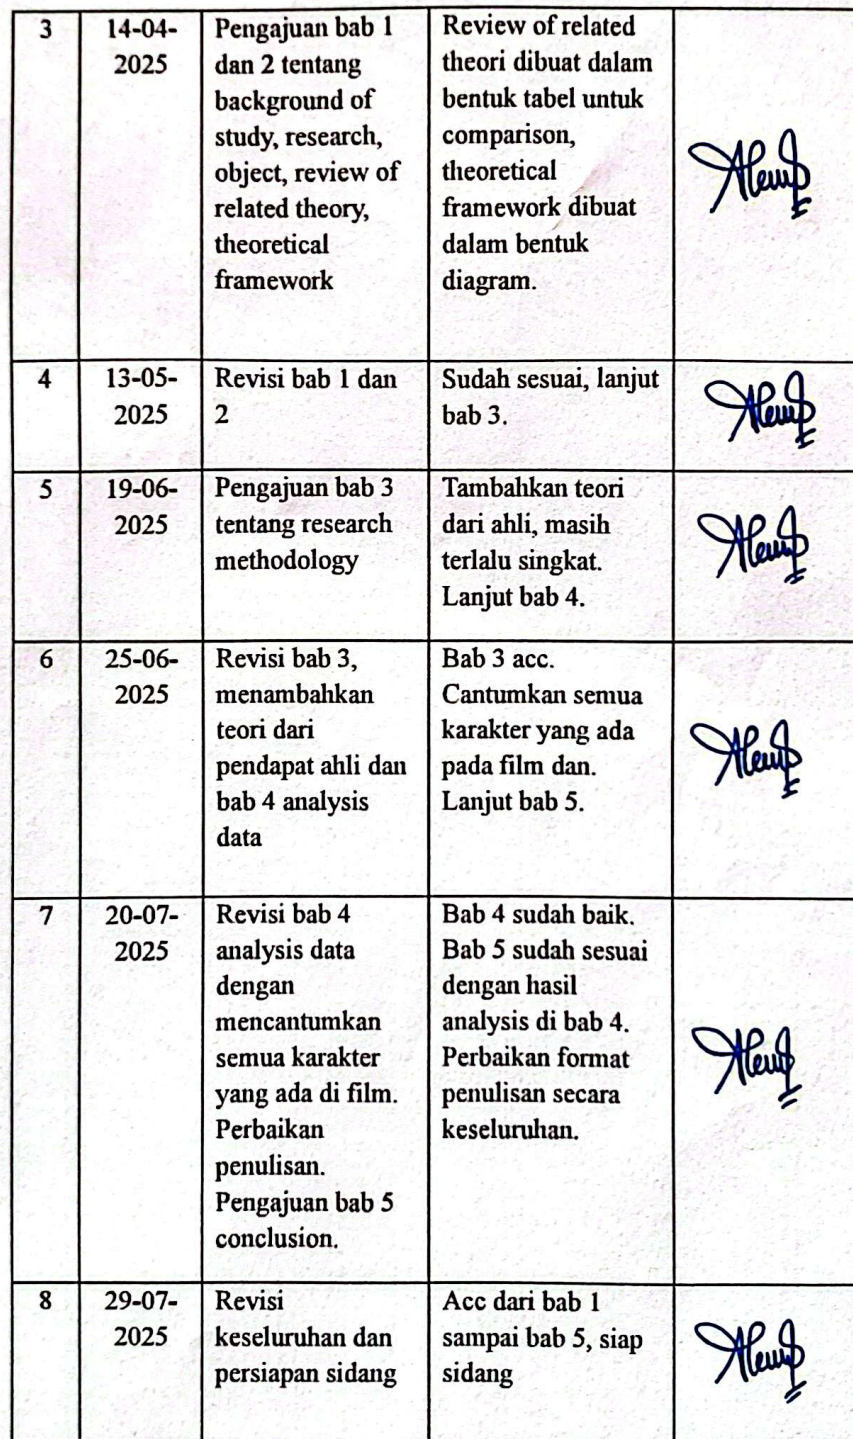 3
14-04-
2025
Pengajuan bab 1
dan 2 tentang
background of
study, research,
object, review of
related theory,
theoretical
framework
Review of related
theori dibuat dalam
bentuk tabel untuk
comparison,
theoretical
framework dibuat
dalam bentuk
diagram.
4
13-05-
2025
Revisi bab 1 dan
2
Sudah sesuai, lanjut
bab 3.
5
19-06-
2025
Pengajuan bab 3
tentang research
methodology
Tambahkan teori
dari ahli, masih
terlalu singkat.
Lanjut bab 4.
6
25-06-
2025
Revisi bab 3,
menambahkan
teori dari
pendapat ahli dan
bab 4 analysis
data
Bab 3 acc.
Cantumkan semua
karakter yang ada
pada film dan.
Lanjut bab 5.
7
20-07-
2025
Revisi bab 4
analysis data
dengan
mencantumkan
semua karakter
yang ada di film.
Perbaikan
penulisan.
Pengajuan bab 5
conclusion.
Bab 4 sudah baik.
Bab 5 sudah sesuai
dengan hasil
analysis di bab 4.
Perbaikan format
penulisan secara
keseluruhan.
8
29-07-
2025
Revisi
keseluruhan dan
persiapan sidang
Acc dari bab 1
sampai bab 5, siap
sidang